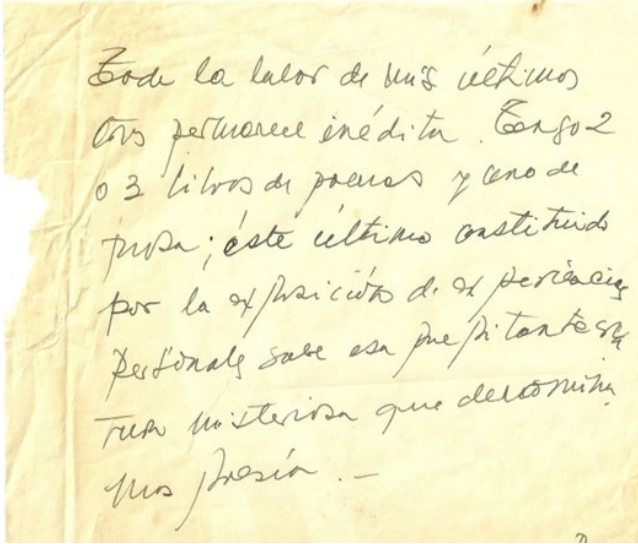 Toda la labor de mis últimos
años permanece inédita. Tengo 2
o 3 libros de poemas y uno de
prosa; éste último constituido
por la exposición de experiencias
personales sobe esa palpitante es
tura misteriosa que denomina
mos poesía. —